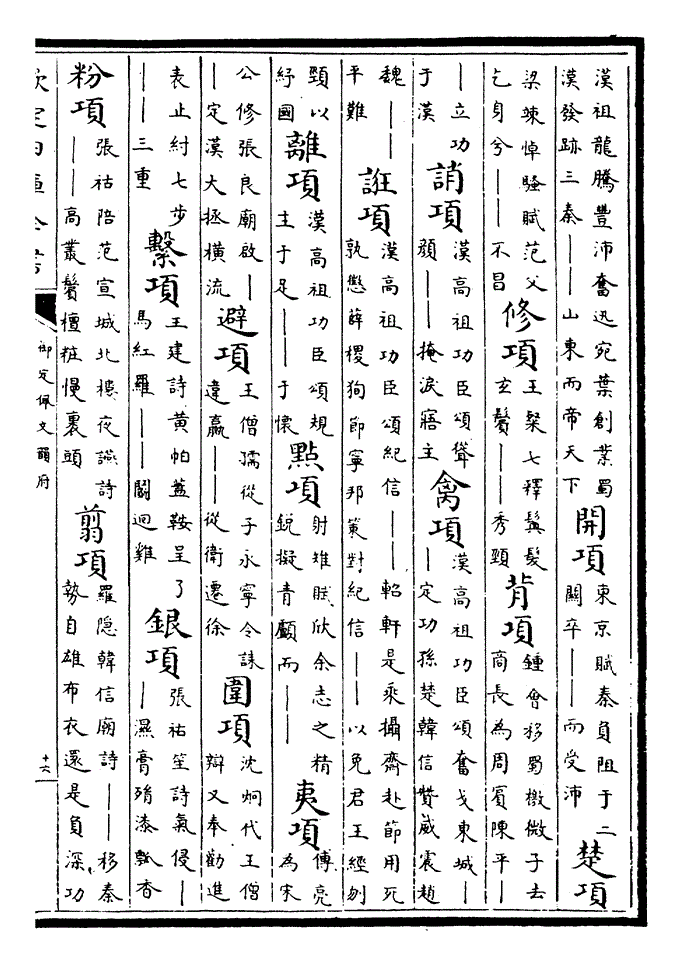 漢祖龍騰豐沛奮迅宛葉創業蜀漢發跡三秦｜｜山東而帝天下開項東京賦秦負阻于二關卒｜｜而受沛楚項
梁竦悼騷賦范父乞身兮｜｜不昌修項王粲七釋鬒髮玄鬢｜｜秀頸背項鍾會移蜀檄微子去商長為周賓陳平｜
｜立功于漢誚項漢高祖功臣頌聳顏｜｜掩淚寤主禽項漢高祖功臣頌奮戈東城｜｜定功孫楚韓信贊威震趙
魏｜｜平難誑項漢高祖功臣頌紀信｜｜軺軒是乘攝齊赴節用死孰懲薛稷狥節寧邦策對紀信｜｜以免君王經刎
頸以紓國離項漢高祖功臣頌規主于足｜｜于懷點項射雉賦欣余志之精銳擬青顱而｜｜夷項傅亮為宋
公修張良廟啟｜｜定漢大拯橫流避項王僧孺從子永寧令誄違嬴｜｜從衛遷徐圍項沈炯代王僧辯又奉勸進
表止紂七步｜｜三重繫項王建詩黃帕蓋鞍呈了馬紅羅｜｜鬬迴雞銀項張祜笙詩氣侵｜｜濕膏殢漆瓢香
粉項張祜陪范宣城北樓夜讌詩｜｜高叢鬢檀粧慢裹頭翦項羅隱韓信廟詩｜｜移秦勢自雄布衣還是負深功
欽定四庫全書
御定佩文韻府
十六